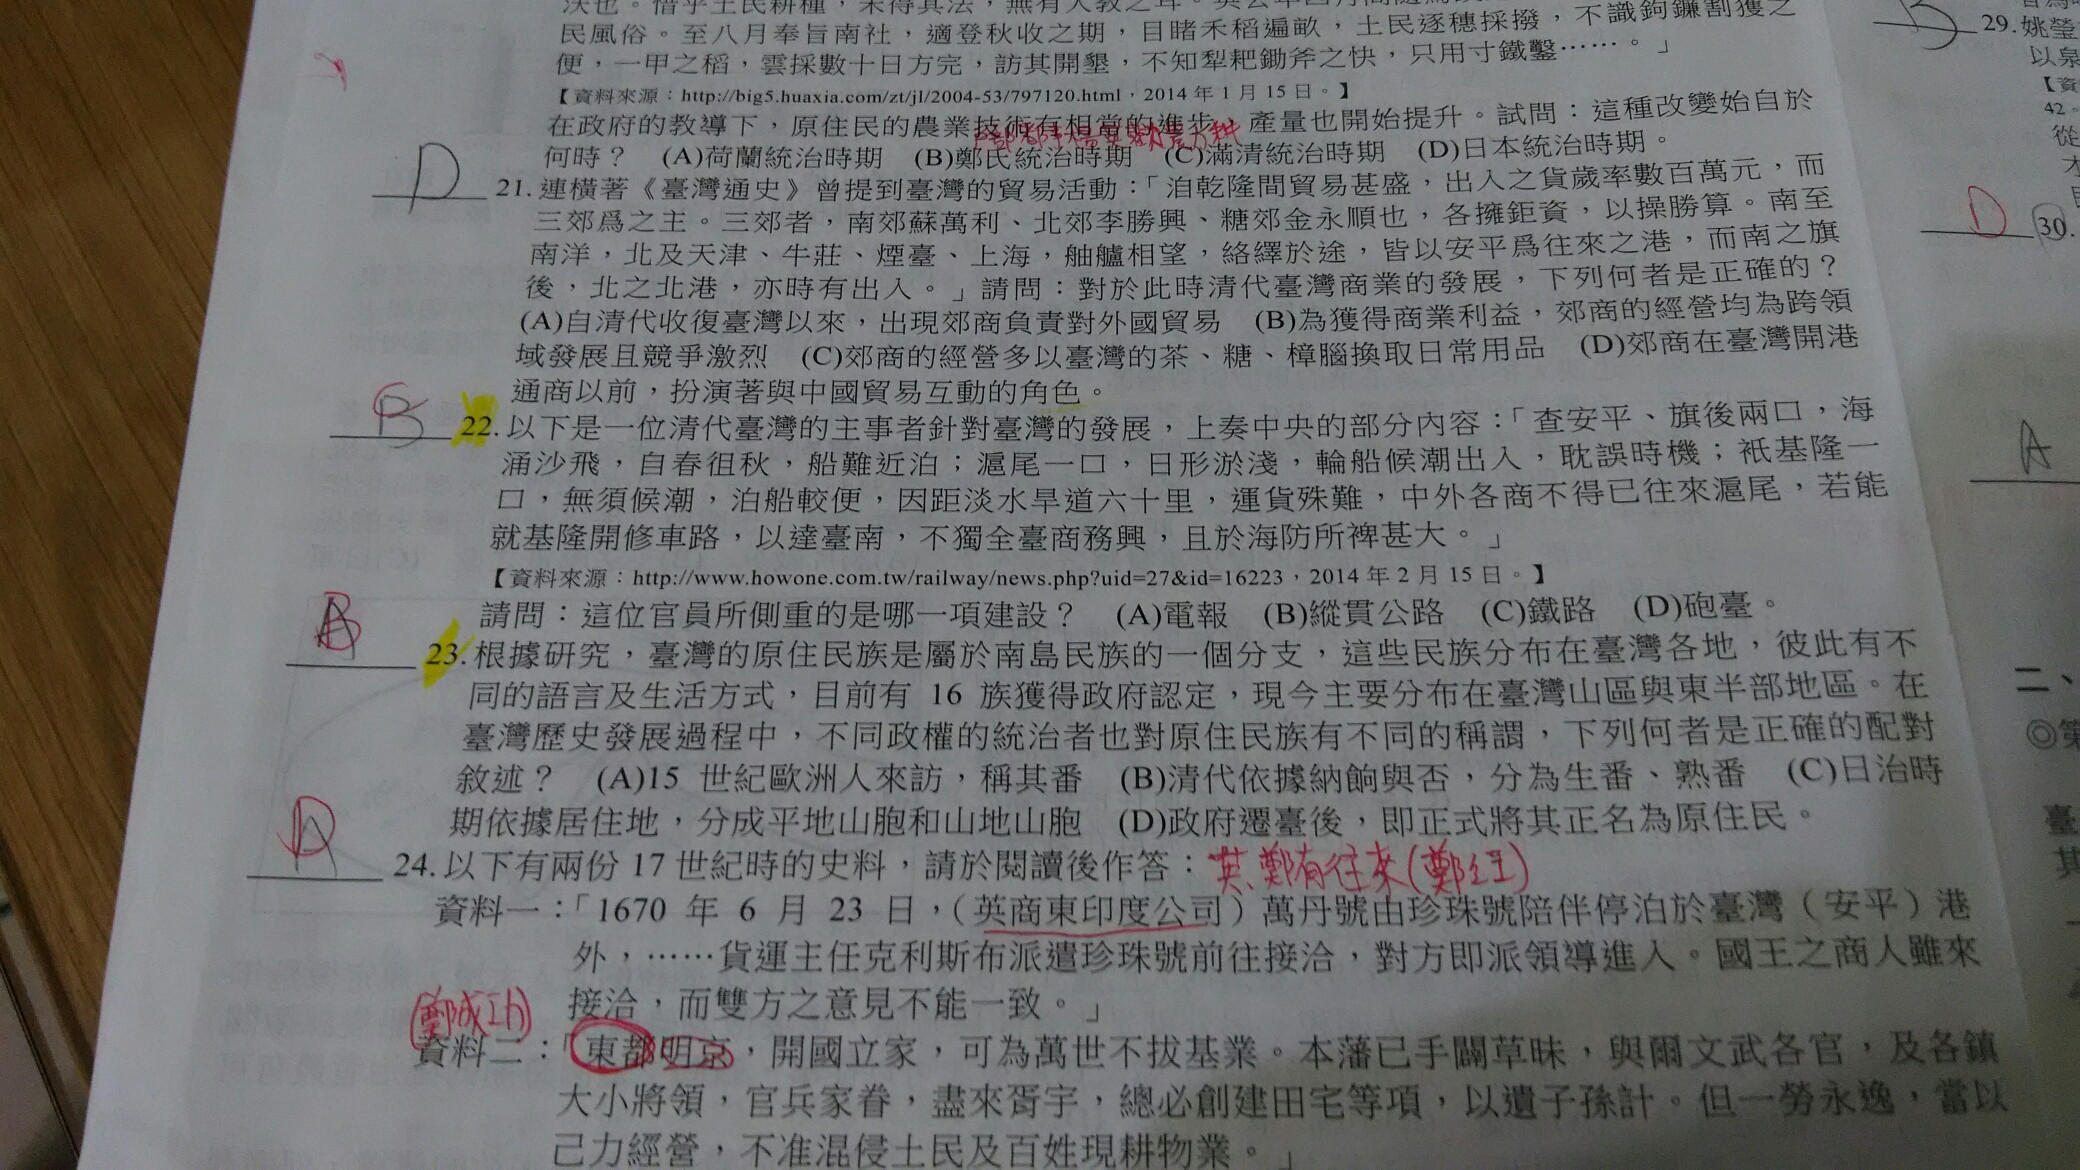 決也。惜乎土民耕種，未得其法，無有人教之耳。英去年四月
民風俗。至八月奉旨南社，適登秋收之期，目睹禾稻遍畝，土民逐穗採撥，不識鉤鐮割獲之
便，一甲之稻，雲採數十日方完，訪其開墾，不知犁耙鋤斧之快，只用寸鐵鑿……。」
【資料來源：http://big5.huaxia.com/zt/jl/2004-53/797120.html，2014 年 1 月 15 日。】
在政府的教導下，原住民的農業技術有相當的進步，產量也開始提升。試問：這種改變始自於
何時？ (A)荷蘭統治時期 (B)鄭氏統治時期 (C)滿清統治時期 (D)日本統治時期。
D 21. 連橫著《臺灣通史》曾提到臺灣的貿易活動：「洎乾隆間貿易甚盛，出入之貨歲率數百萬元，而
三郊爲之主。三郊者，南郊蘇萬利、北郊李勝興、糖郊金永順也，各擁鉅資，以操勝算。南至
南洋，北及天津、牛莊、煙臺、上海，舳艫相望，絡繹於途，皆以安平爲往來之港，而南之旗
後，北之北港，亦時有出入。」請問：對於此時清代臺灣商業的發展，下列何者是正確的？
(A)自清代收復臺灣以來，出現郊商負責對外國貿易 (B)為獲得商業利益，郊商的經營均為跨領
域發展且競爭激烈 (C)郊商的經營多以臺灣的茶、糖、樟腦換取日常用品 (D)郊商在臺灣開港
通商以前，扮演著與中國貿易互動的角色。
B 22. 以下是一位清代臺灣的主事者針對臺灣的發展，上奏中央的部分內容：「查安平、旗後兩口，海
涌沙飛，自春徂秋，船難近泊；滬尾一口，日形淤淺，輪船候潮出入，耽誤時機；衹基隆一
口，無須候潮，泊船較便，因距淡水旱道六十里，運貨殊難，中外各商不得已往來滬尾，若能
就基隆開修車路，以達臺南，不獨全臺商務興，且於海防所裨甚大。」
【資料來源：http://www.howone.com.tw/railway/news.php?uid=27&id=16223，2014 年 2 月 15 日。】
請問：這位官員所側重的是哪一項建設？ (A)電報 (B)縱貫公路 (C)鐵路 (D)砲臺。
B 23. 根據研究，臺灣的原住民族是屬於南島民族的一個分支，這些民族分布在臺灣各地，彼此有不
同的語言及生活方式，目前有 16 族獲得政府認定，現今主要分布在臺灣山區與東半部地區。在
臺灣歷史發展過程中，不同政權的統治者也對原住民族有不同的稱謂，下列何者是正確的配對
敘述？ (A)15 世紀歐洲人來訪，稱其番 (B)清代依據納餉與否，分為生番、熟番 (C)日治時
期依據居住地，分成平地山胞和山地山胞 (D)政府遷臺後，即正式將其正名為原住民。
D 24. 以下有兩份 17 世紀時的史料，請於閱讀後作答：英、鄭有往來(鄭經)
資料一：「1670 年 6 月 23 日，（英商東印度公司）萬丹號由珍珠號陪伴停泊於臺灣（安平）港
外，……貨運主任克利斯布派遣珍珠號前往接洽，對方即派領導進入。國王之商人雖來
接洽，而雙方之意見不能一致。」
鄭成功
資料二：「東都明京，開國立家，可為萬世不拔基業。本藩已手闢草昧，與爾文武各官，及各鎮
大小將領，官兵家眷，盡來胥宇，總必創建田宅等項，以遺子孫計。但一勞永逸，當以
己力經營，不准混侵土民及百姓現耕物業。」
B 29. 姚瑩
以泉
【資
42。
從
D 30.
A
二、
◎第
臺
其